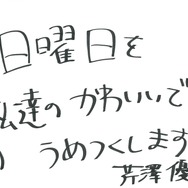 日曜日を
私達の かわいいで
うめつくします
芹澤 優